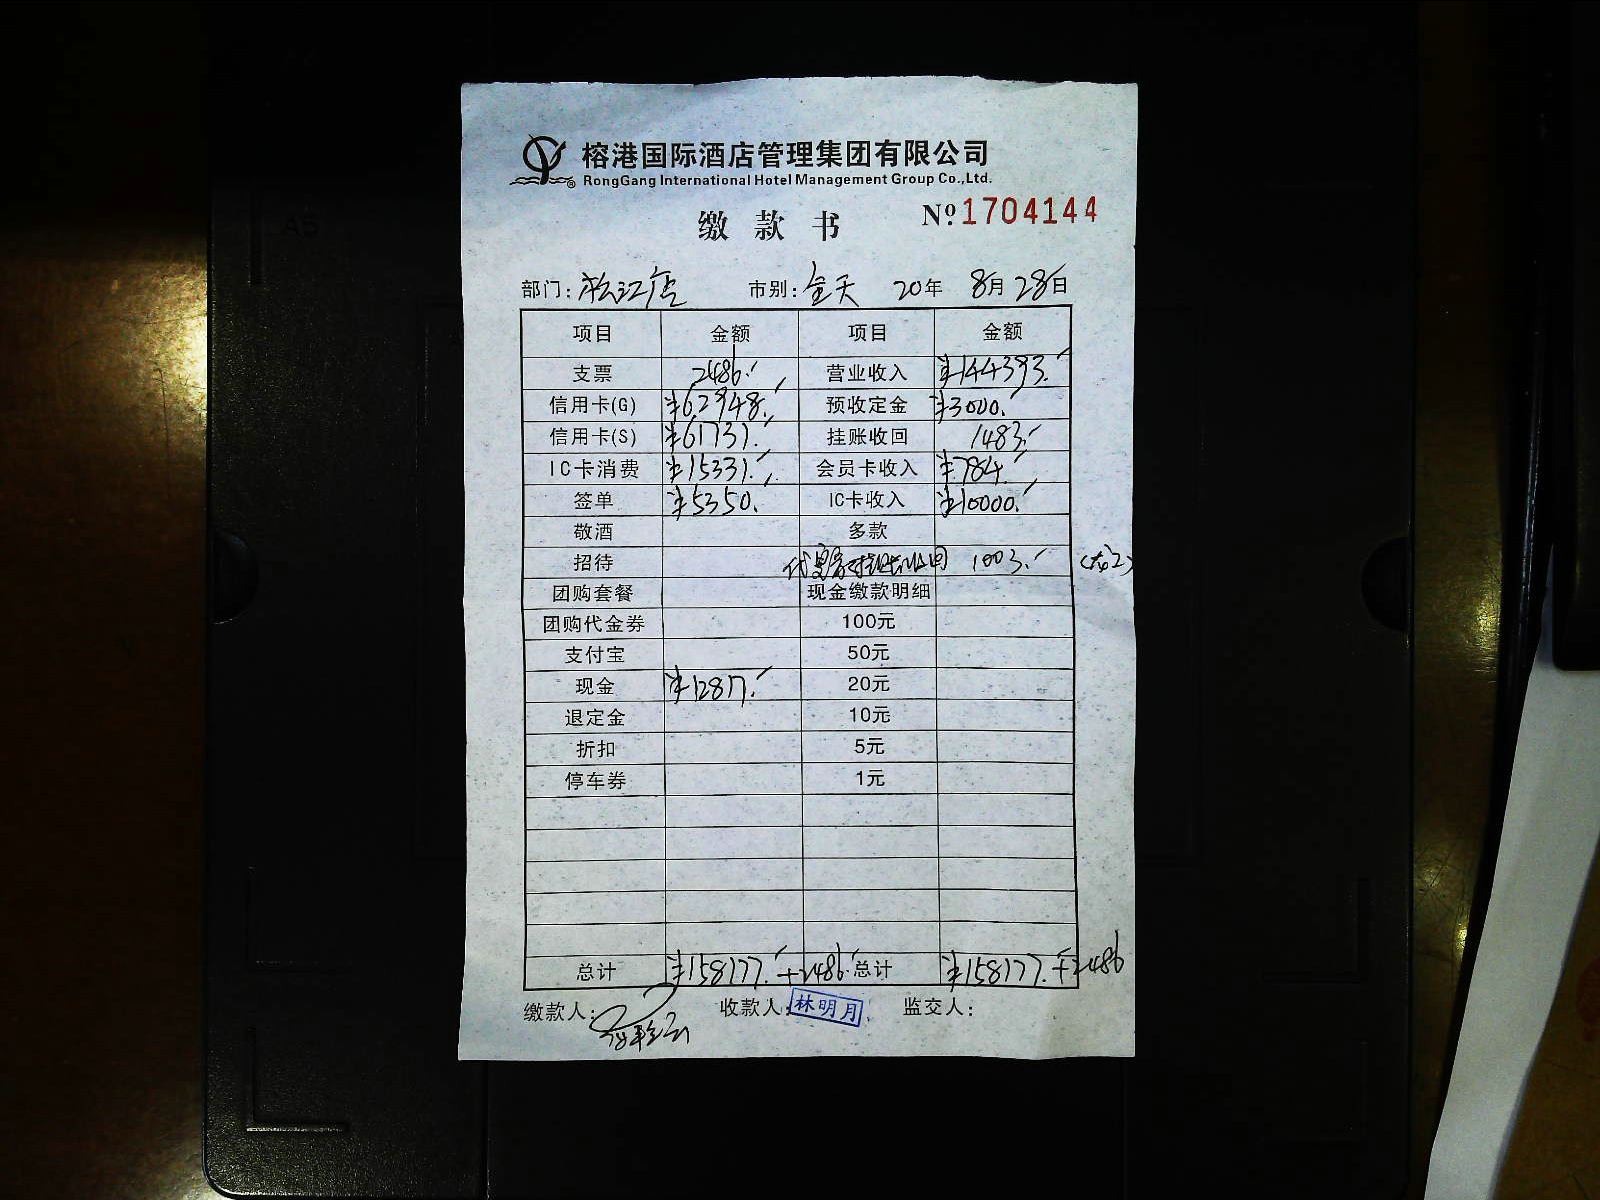 榕港国际酒店管理集团有限公司
RongGang International Hotel Management Group Co.,Ltd.
缴款书 № 1704144
部门: 松江店 市别: 全天 20年 8月28日
项目 金额 项目 金额
支票 2486.- 营业收入 ¥144393.-
信用卡(G) ¥62948.- 预收定金 ¥3000.-
信用卡(S) ¥61731.- 挂账收回 1483.-
IC卡消费 ¥15331.- 会员卡收入 ¥784.-
签单 ¥5350.- IC卡收入 ¥10000.-
敬酒 多款
招待 1003.-
团购套餐 现金缴款明细
团购代金券 100元
支付宝 50元
现金 ¥12817.- 20元
退定金 10元
折扣 5元
停车券 1元
总计 ¥158177.-+2486.- 总计 ¥158177.-+2486
缴款人: 收款人: 林明月 监交人:
A5